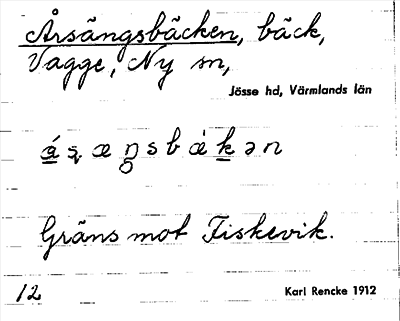 Årsängsbäcken, bäck,
Vagge, Ny sn,
Jösse hd, Värmlands län
Gräns mot Fiskevik.
12
Karl Rencke 1912